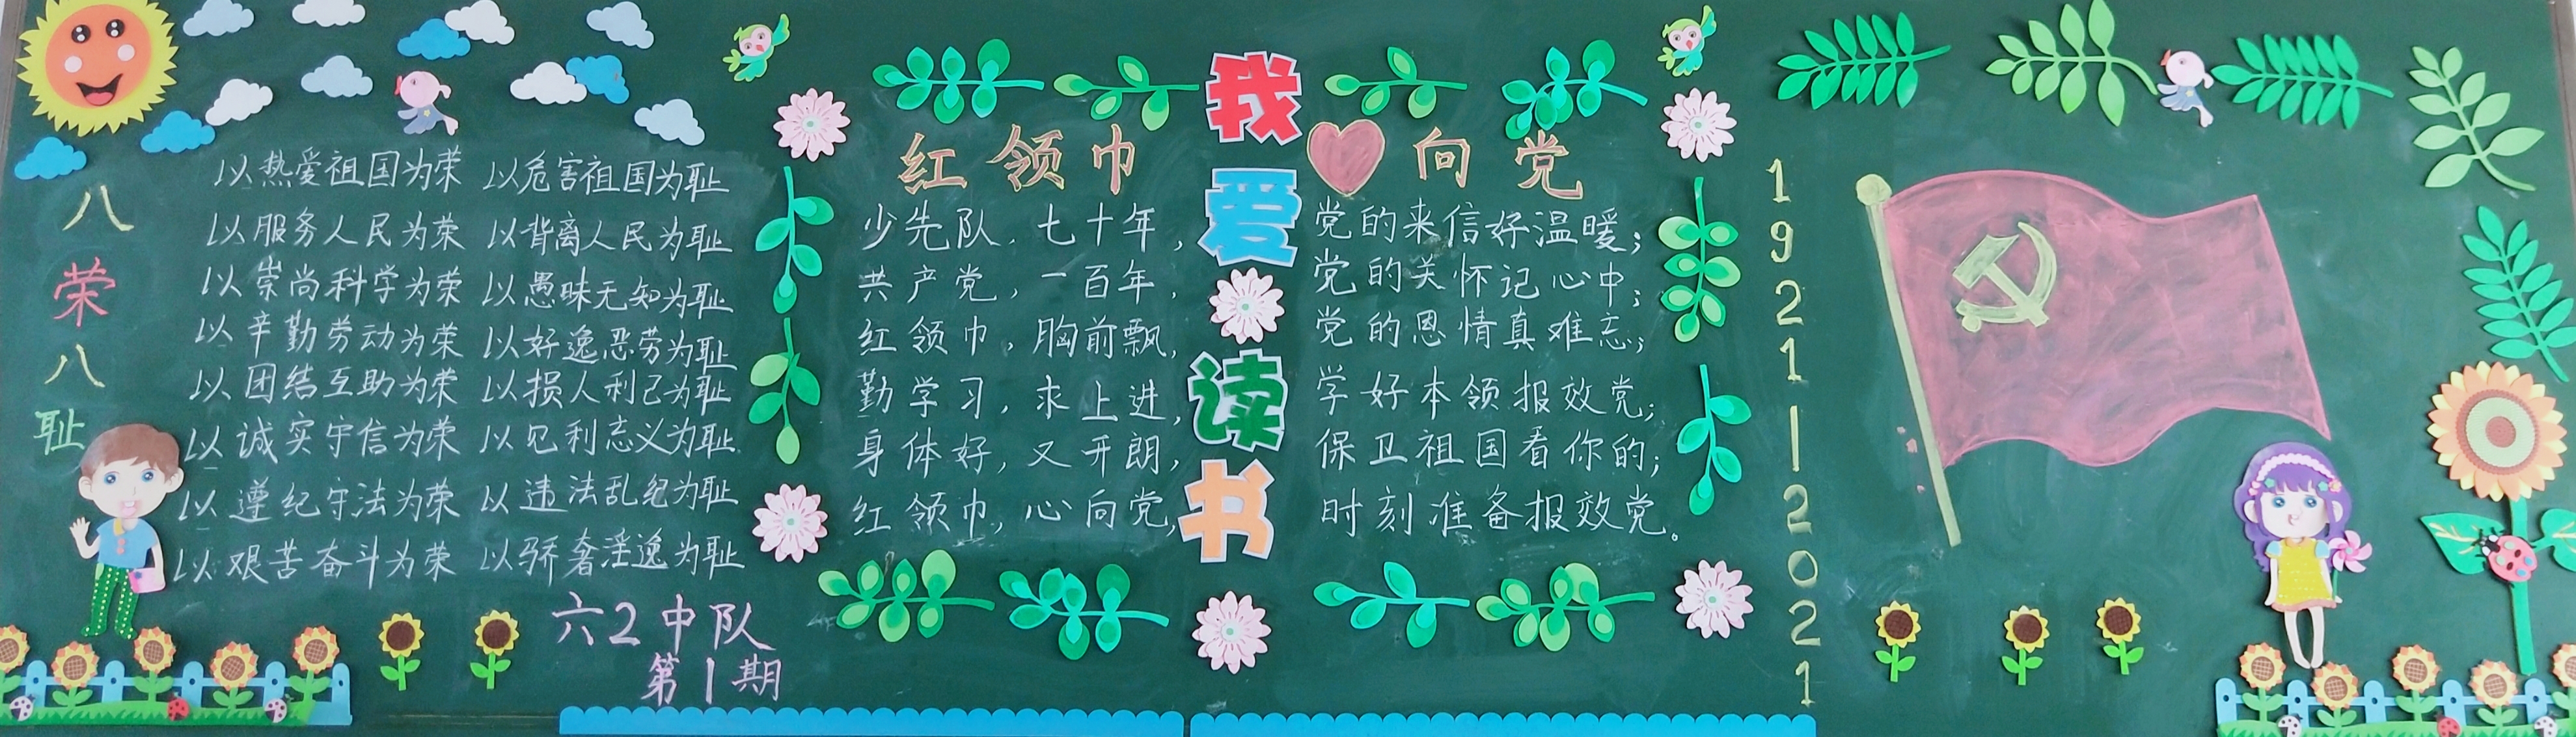 八荣八耻
以热爱祖国为荣 以危害祖国为耻
以服务人民为荣 以背离人民为耻
以崇尚科学为荣 以愚昧无知为耻
以辛勤劳动为荣 以好逸恶劳为耻
以团结互助为荣 以损人利己为耻
以诚实守信为荣 以见利忘义为耻
以遵纪守法为荣 以违法乱纪为耻
以艰苦奋斗为荣 以骄奢淫逸为耻
六2中队
第1期
红领巾
少先队,七十年,
共产党,一百年,
红领巾,胸前飘,
勤学习,求上进,
身体好,又开朗,
红领巾,心向党,
我爱读书
向党
党的来信好温暖;
党的关怀记心中;
党的恩情真难忘;
学好本领报效党;
保卫祖国看你的;
时刻准备报效党。
1921—2021